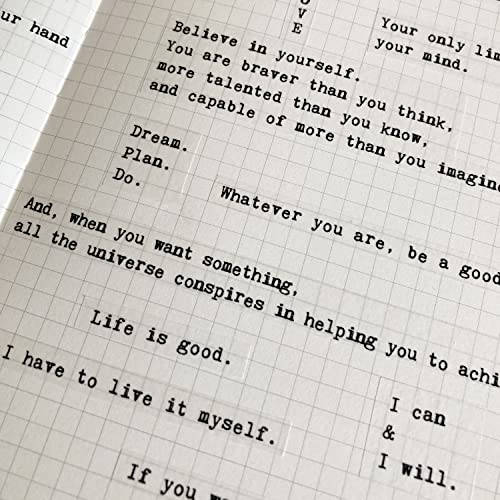 ur hand
V
E
Your only
your mind.
Believe in yourself.
You are braver than you think,
more talented than you know,
and capable of more than you imagine
Dream.
Plan.
Do.
Whatever you are, be a good
And, when you want something,
all the universe conspires in helping you to achi
Life is good.
I have to live it myself.
I can
&
I will.
If you